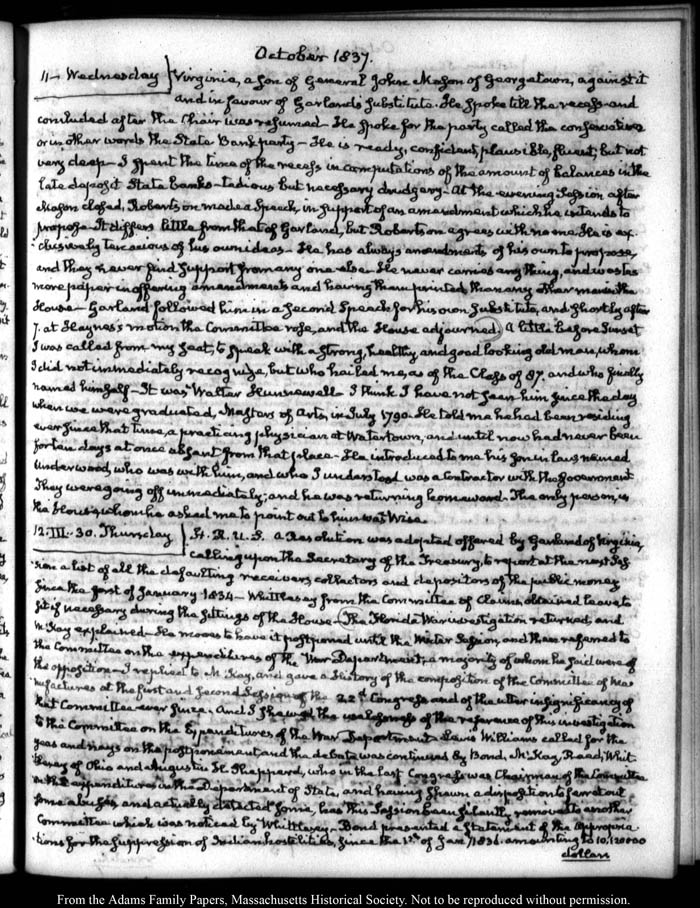 October 1837.
11. Wednesday } Virginia, a son of General John Mason of Georgetown, against it
and in favour of Garland's Substitute. He spoke till the recess and
concluded after the Chair was resumed – He spoke for the party called the conservatives
or in other words the State Bank party – He is ready, confident, plausible, fluent, but not
very deep – I spent the time of the recess in computations of the amount of balances in the
late deposit State banks – tedious but necessary drudgery – At the evening Session after
Mason closed, Robertson made a Speech, in support of an amendment which he intends to
propose – It differs little from that of Garland, but Robertson agrees with no one. He is ex-
clusively tenacious of his own ideas – He has always amendments of his own to propose,
and they never find support from any one else – He never carries any thing, and wastes
more paper in offering amendments and having them printed than any other man in the
House – Garland followed him in a second Speech for his own Substitute, and shortly after
7. at Haynes's motion the Committee rose, and the House adjourned. A little before Sunset
I was called from my seat, to speak with a strong, healthy and good looking old man, whom
I did not immediately recognize, but who hailed me, as of the Class of 87. and who finally
named himself – It was Walter Hunnewell – I think I have not seen him since the day
when we were graduated, Masters of Arts, in July 1790. He told me he had been residing
ever since that time, a practicing physician at Watertown, and until now had never been
for ten days at once absent from that place – He introduced to me his son in law named
Underwood, who was with him, and who I understood was a Contractor with the Government
They were going off immediately; and he was returning homeward – The only person, in
the House whom he asked me to point out to him was Wise.
12. III. 30. Thursday } H. R. U. S. a Resolution was adopted offered by Garland of Virginia,
calling upon the Secretary of the Treasury, to report at the next Ses-
sion a list of all the defaulting receivers collectors and depositors of the public money
Since the first of January 1834 – Whittlesey from the Committee of Claims, obtained leave to
sit if necessary during the sittings of the House – The Florida War investigation returned, and
McKay explained – He moves to have it postponed until the Winter Session, and then referred to
the Committee on the expenditures of the War Department, a majority of whom he said were of
the opposition – I replied to McKay, and gave a History of the composition of the Committee of Ma-
nufactures at the first and Second Sessions of the 22d Congress and of the utter insignificancy of
that Committee ever since, And I shewed the uselessness of the reference of this investigation
to the Committee on the Expenditures of the War Department – Lewis Williams called for the
yeas and nays on the postponement and the debate was continued by Bond, McKay, Reed, Whit-
tlesey of Ohio and Augustine H. Shepperd, who in the last Congress was Chairman of the Committee
on the expenditures in the Department of State, and having shewn a disposition to ferret out
some abuses, and actually detected some, has this Session been silently removed to another
Committee which was noticed by Whittlesey – Bond presented a Statement of the appropria-
tions for the suppression of Indian hostilities, since the 1st of Jany 1836. amounting to 10,120000
dollars
From the Adams Family Papers, Massachusetts Historical Society. Not to be reproduced without permission.